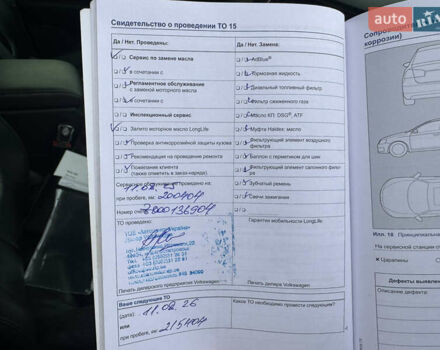 auto RIA
Свидетельство о проведении ТО 15
Да / Нет. Проведены:
Да / Нет. Замена:
Сервис по замене масла
AdBlue®
в сочетании с
Тормозная жидкость
Регламентное обслуживание
с заменой моторного масла
Дизельный топливный фильтр
в сочетании с
Фильтр сжиженного газа
Инспекционный сервис
Масло КП: DSG®, ATF
Залито моторное масло LongLife
Муфта Haldex: масло
Проверка антикоррозийной защиты кузова
Фильтрующий элемент воздушного
фильтра
Рекомендация на проведение ремонта
Баллон с герметиком для шин
Пожелания клиента
(также отметить в заказ-наряде)
Фильтрующий элемент салонного фильтра
Зубчатый ремень
при пробеге, км: 200404
Свечи зажигания
ТО проведено:
Гарантии мобильности LongLife
Печать дилерского предприятия Volkswagen
Печать дилера Volkswagen
Ваше следующее ТО
Какое ТО необходимо провести следующим?
(дата): 11.02.26
или
при пробеге, км: 215404
коррозии)
Илл. 18 Принципиальна
На сервисной станции от
× Царапины
Дефекты выявлен
Описание дефекта: